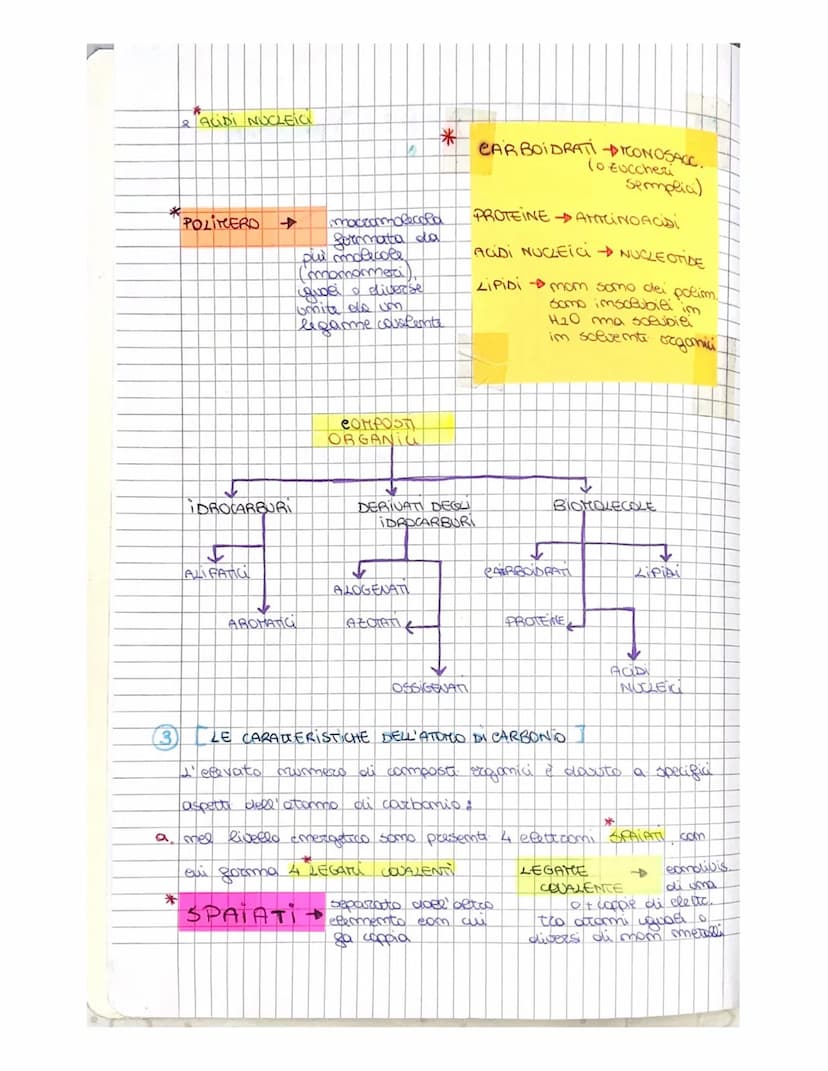 e *ACIDI NUCLEICI
* POLIMERO → macromolecola
formata da
più molecole
(monomeri),
uguali o diverse
unite da un
legame covalente
* CARBOIDRATI → MONOSACC.
(o zuccheri
semplici)
PROTEINE → AMMINOACIDI
ACIDI NUCLEICI → NUCLEOTIDE
LIPIDI → non sono dei polim.
sono insolubili in
H2O ma solubili
in solventi organici
COMPOSTI
ORGANICI
IDROCARBURI
DERIVATI DEGLI
IDROCARBURI
BIOMOLECOLE
ALIFATICI
AROMATICI
ALOGENATI
AZOTATI
OSSIGENATI
CARBOIDRATI
LIPIDI
PROTEINE
ACIDI
NUCLEICI
3 [LE CARATTERISTICHE DELL'ATOMO DI CARBONIO]
L'elevato numero di composti organici è dovuto a specifici
aspetti dell'atomo di carbonio:
a. nel livello energetico sono presenti 4 elettroni *SPAIATI, con
cui forma 4 *LEGAMI COVALENTI
* SPAIATI → separato dall'altro
elemento con cui
fa coppia
LEGAME → condivis.
COVALENTE di una
o + coppie di elettr.
tra atomi uguali o
diversi di non metalli